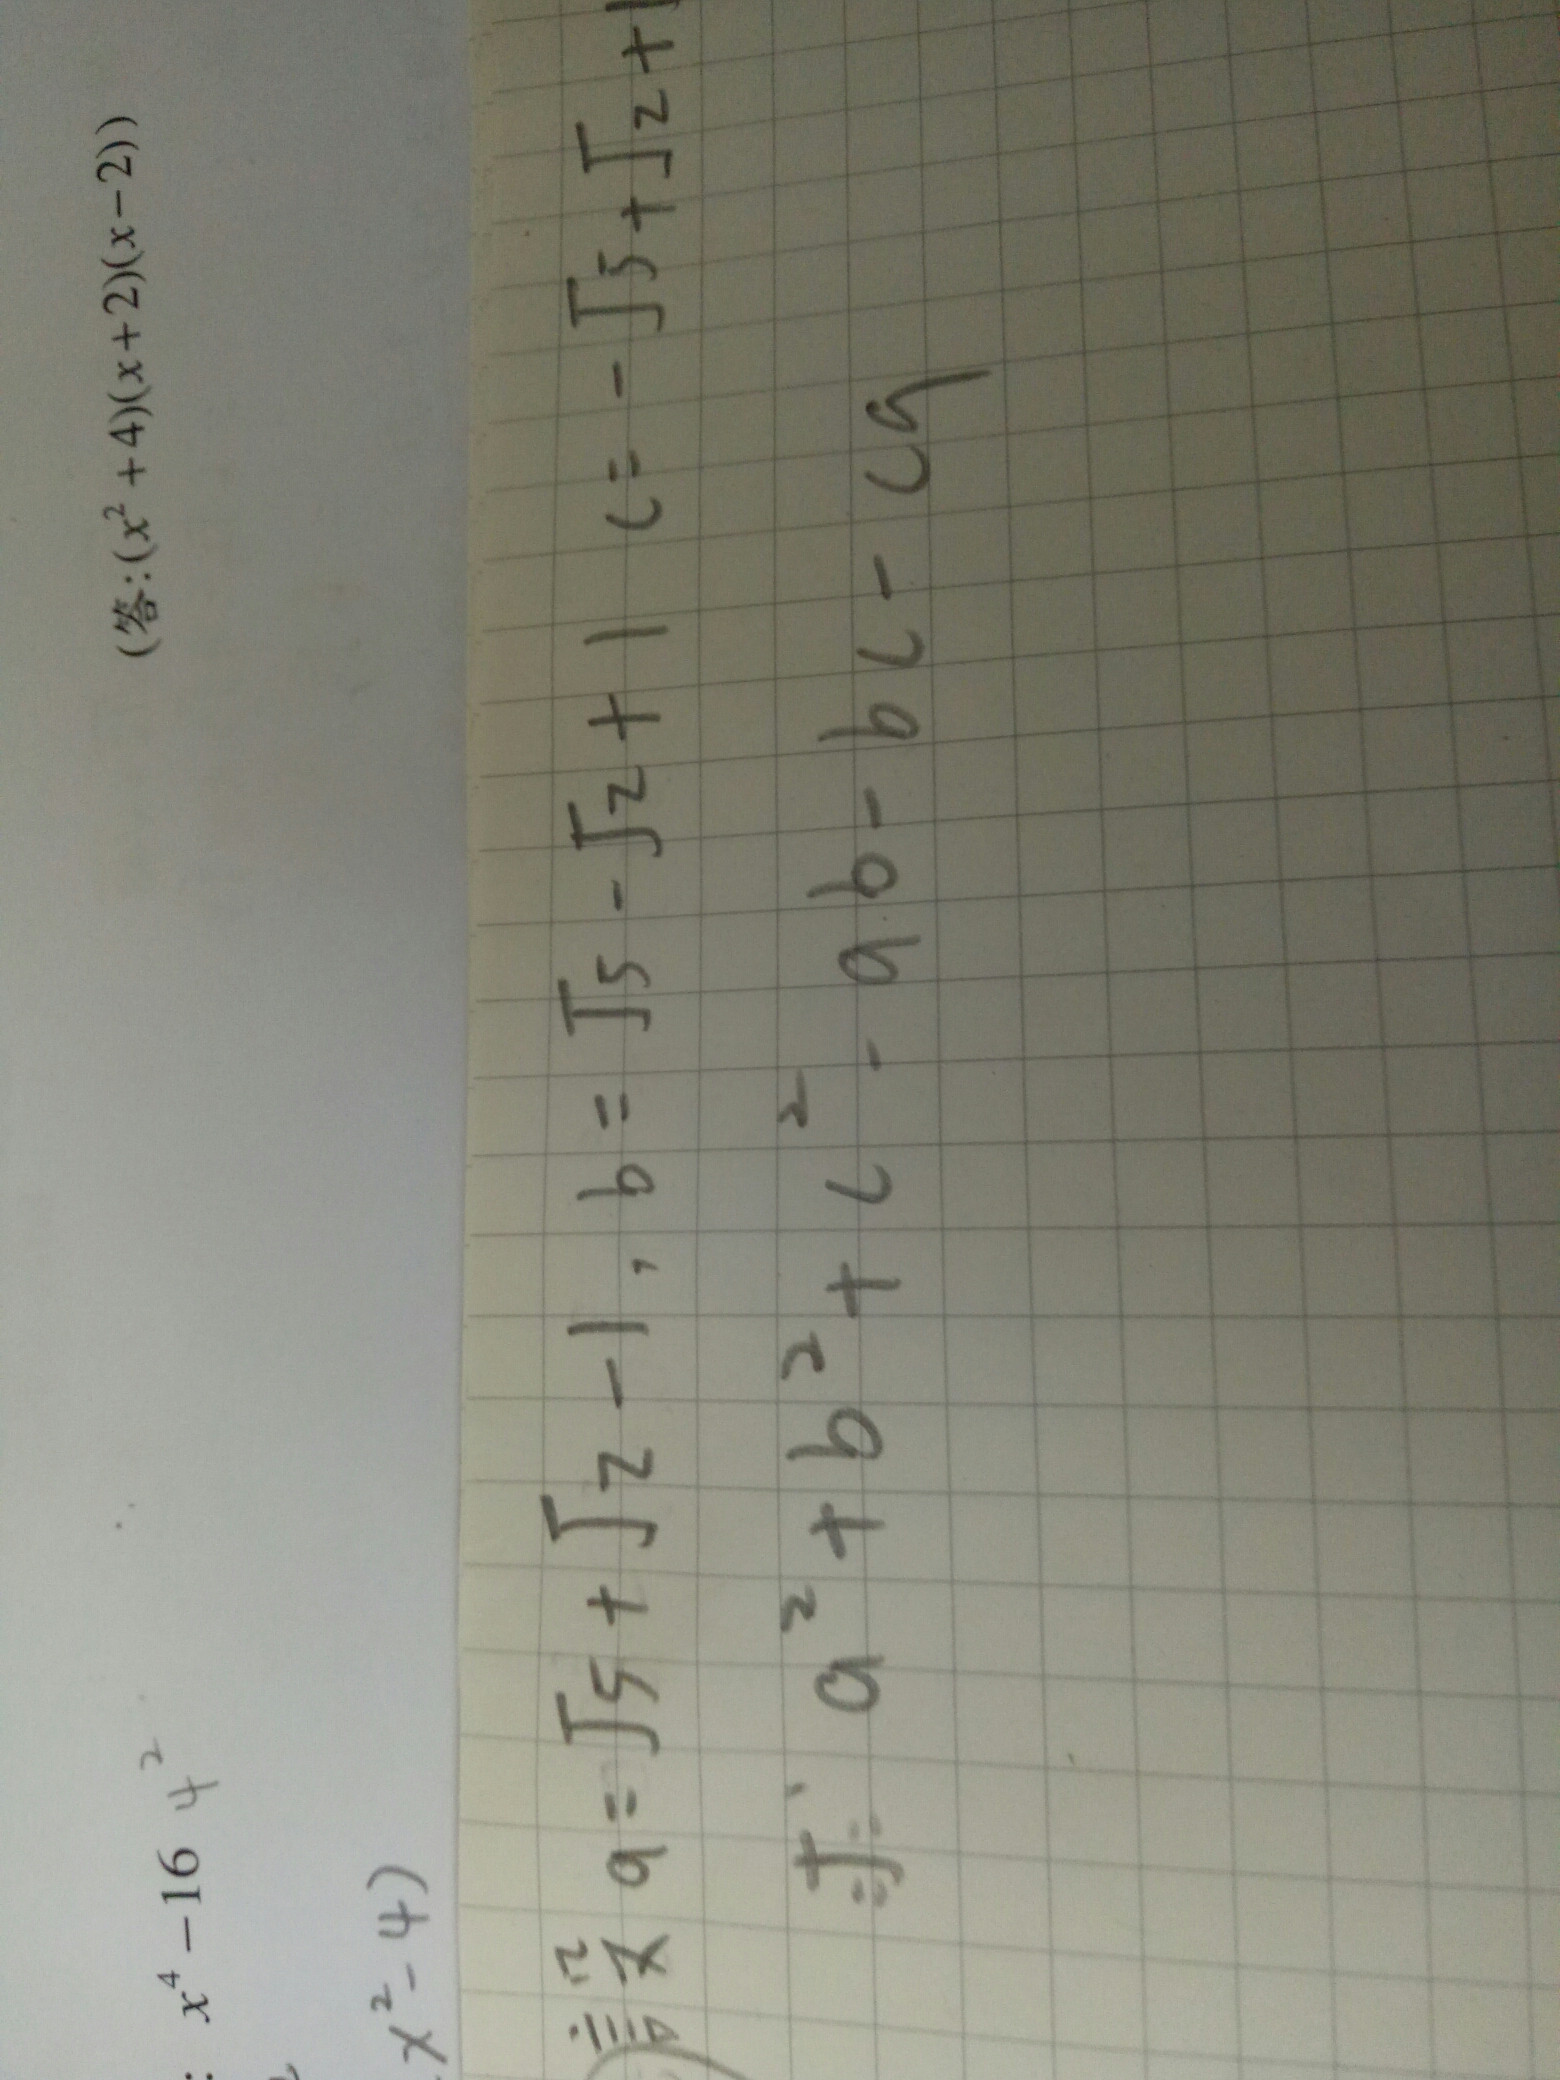 : x⁴-16 4² (答:(x²+4)(x+2)(x-2))
x²-4)
設 a=√5+√2-1, b=√5-√2+1 c=-√5+√2+1
求: a²+b²+c²-ab-bc-ca